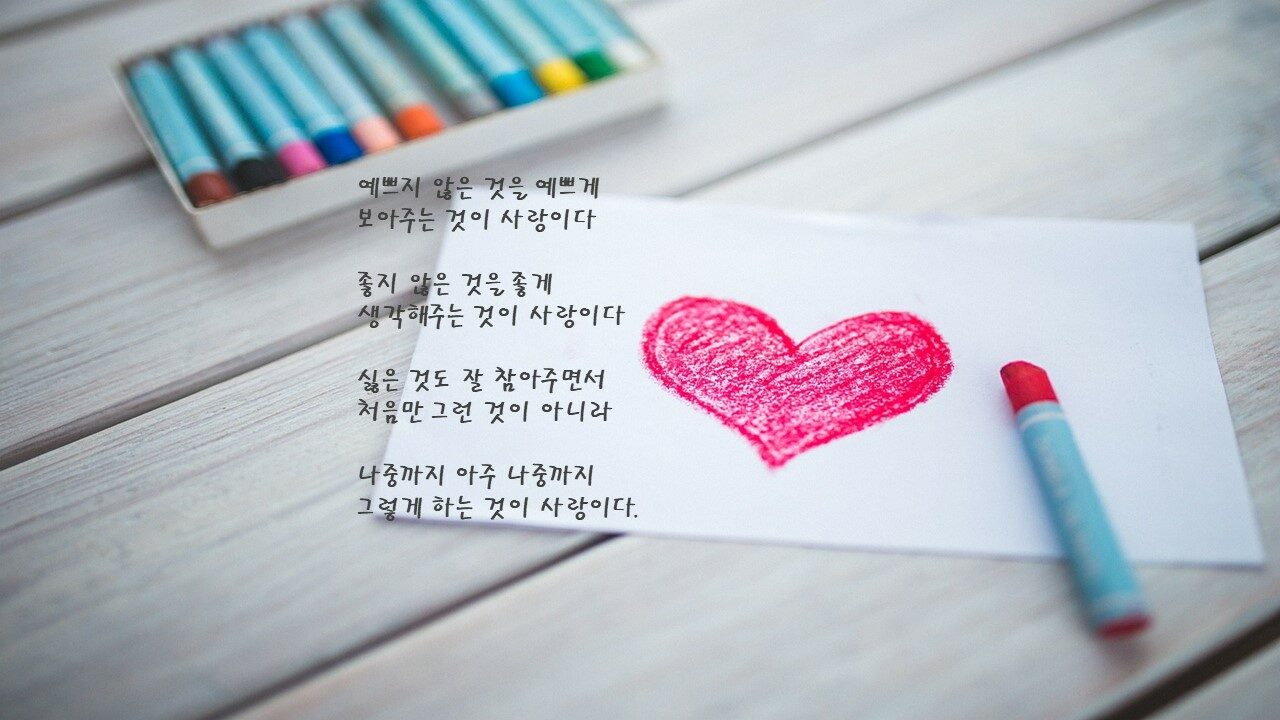 예쁘지 않은 것을 예쁘게
보아주는 것이 사랑이다
좋지 않은 것을 좋게
생각해주는 것이 사랑이다
싫은 것도 잘 참아주면서
처음만 그런 것이 아니라
나중까지 아주 나중까지
그렇게 하는 것이 사랑이다.